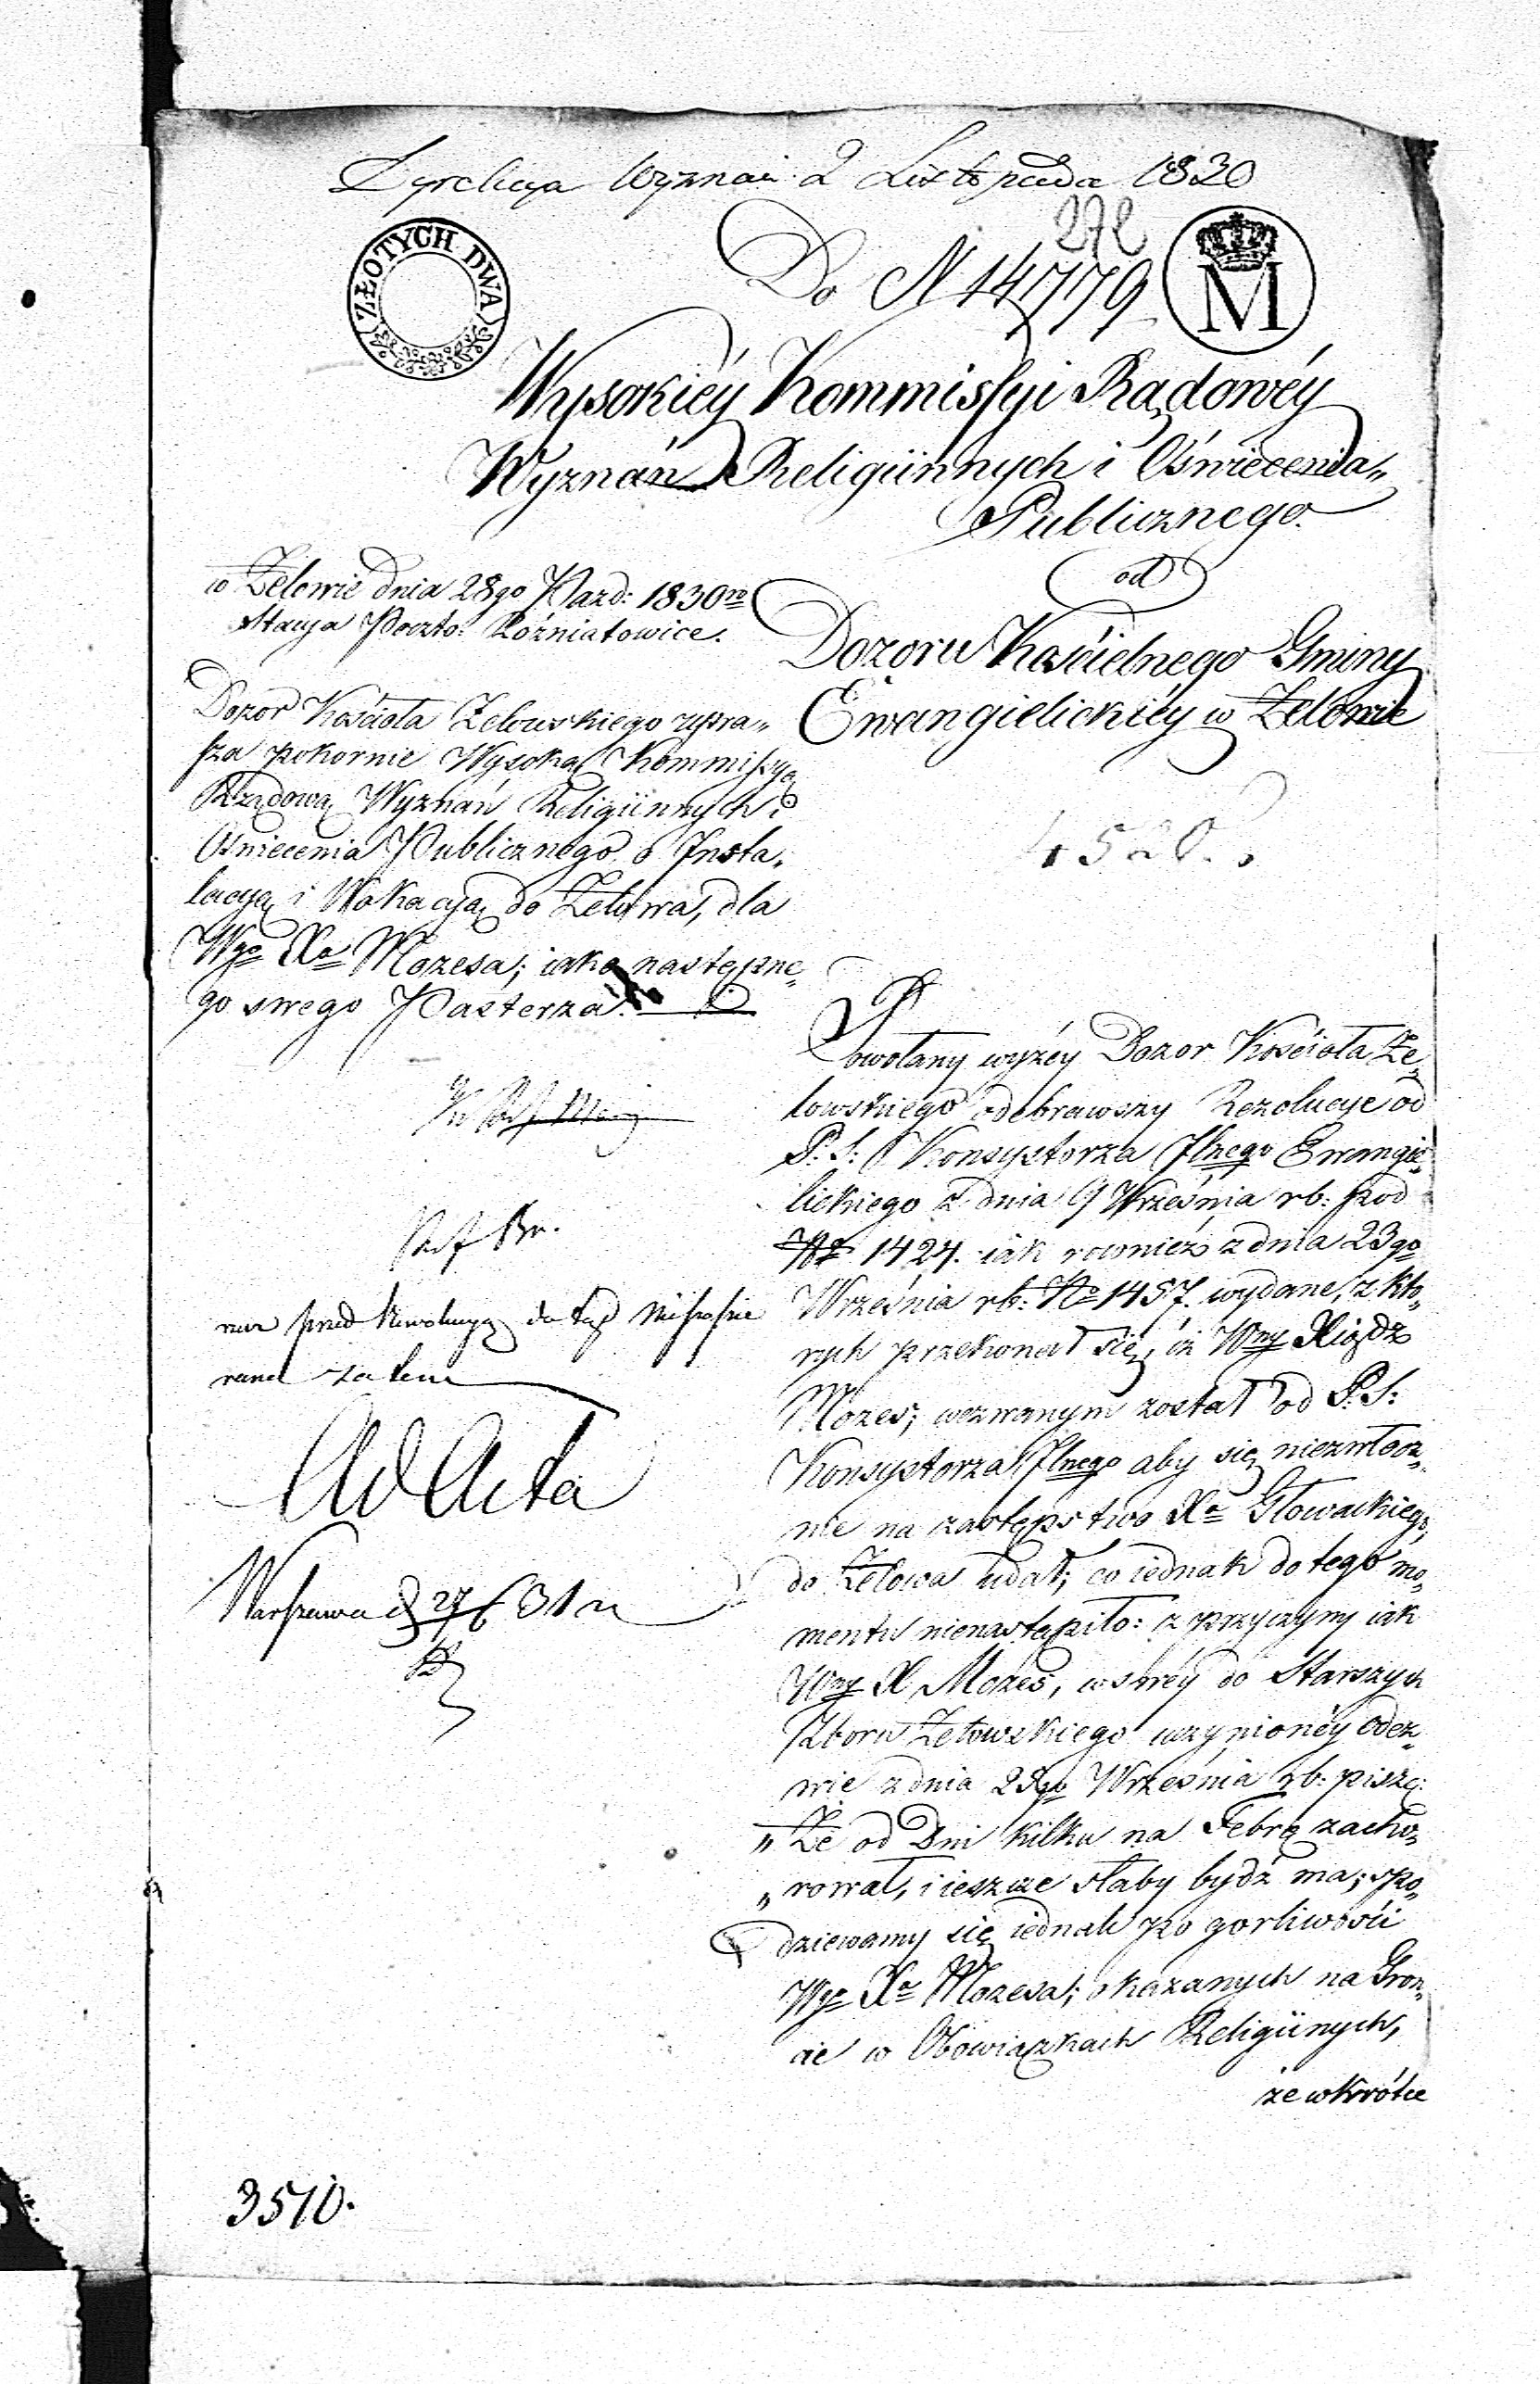 Dyrekcya Wyznań 2 Listopada 1830
272
ZŁOTYCH DWA
Do N 14779
M
Wysokiéy Kommissyi Rządowéy
Wyznań Religiinnych i Oświecenia„
Publicznego.
od
Dozoru Kościelnego Gminy
Ewangielickiéy w Zelowie
w Zelowie dnia 28go Pazd: 1830ro
Stacya Poczto: Rózniatowice.
Dozor Kościoła Zelowskiego upra„
sza pokornie Wysoką Kommissyą
Rządową Wyznań Religiinnych i
Oświecenia Publicznego o Insta„
lacyą i Wokacyą do Zelowa, dla
Wgo Xa Mozesa; iako następne„
go swego Pasterza.
4520.
Powołany wyzéy Dozor Kościoła Ze„
lowskiego odebrawszy Rezolucye od
P: S: Konsystorza Jlnego Ewangie„
lickiego z dnia 9 Września rb: pod
No 1424. iak rownież z dnia 23go
Września rb: No 1457. wydane, z któ„
rych przekonał się, iż Wny Xiądz
Mozes; wezwanym został od P: S:
Konsystorza Jlnego aby się niezwłocz„
nie na zastępstwo Xa Głowackiego,
do Zelowa udał; co iednak do tego mo„
mentu nienastąpiło: z przyczyny iak
Wny X Mozes, w swéy do Starszych
Zboru Zelowskiego uczynionéy Odez„
wie z dnia 28go Września rb: pisze:
„ Że od Dni kilku na Febrę zacho„
„ rował, i ieszcze słaby bydź ma; spo„
dziewamy się iednak po gorliwości
Wgo Xa Mozesa; okazanych na Gron„
cie w Obowiązkach Religiinych,
że wkrótce
Ad Acta
Warszawa d 27/6 31 r
3510.